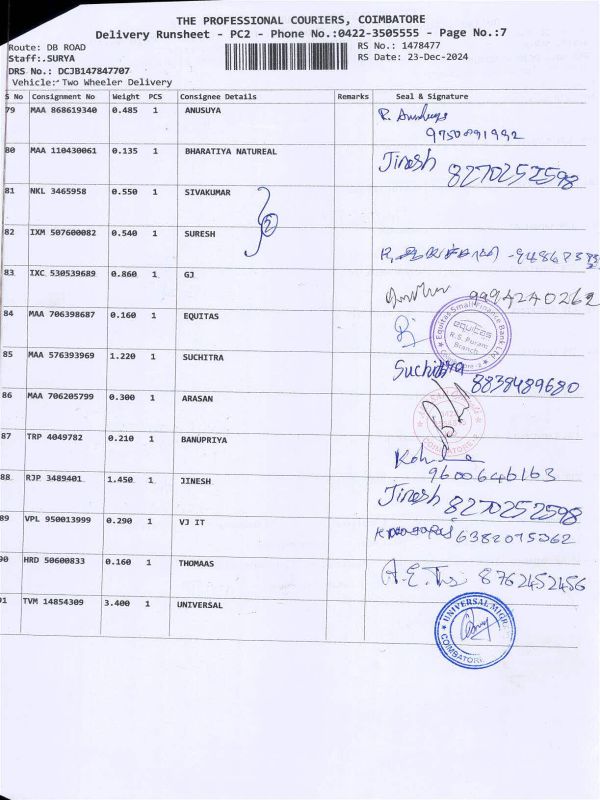 THE PROFESSIONAL COURIERS, COIMBATORE
Delivery Runsheet - PC2 - Phone No.:0422-3505555 - Page No.:7
Route: DB ROAD
RS No.: 1478477
Staff:.SURYA
RS Date: 23-Dec-2024
DRS No.: DCJB147847707
Vehicle: Two Wheeler Delivery
S No Consignment No Weight PCS Consignee Details Remarks Seal & Signature
79 MAA 868619340 0.485 1 ANUSUYA
9750891992
80 MAA 110430061 0.135 1 BHARATIYA NATUREAL Jinesh 8270252598
81 NKL 3465958 0.550 1 SIVAKUMAR
2
82 IXM 507600082 0.540 1 SURESH
83 IXC 530539689 0.860 1 GJ
9994240262
84 MAA 706398687 0.160 1 EQUITAS
Equitas Small Finance Bank Ltd
equitas
R.S. Puram
Branch
85 MAA 576393969 1.220 1 SUCHITRA Suchithra 8838489680
86 MAA 706205799 0.300 1 ARASAN
COIMBATORE
87 TRP 4049782 0.210 1 BANUPRIYA
9600646163
88 RJP 3489401 1.450 1 JINESH Jinesh 8270252598
89 VPL 950013999 0.290 1 VJ IT 6382075362
90 HRD 50600833 0.160 1 THOMAAS 8762452456
91 TVM 14854309 3.400 1 UNIVERSAL
UNIVERSAL
COIMBATORE